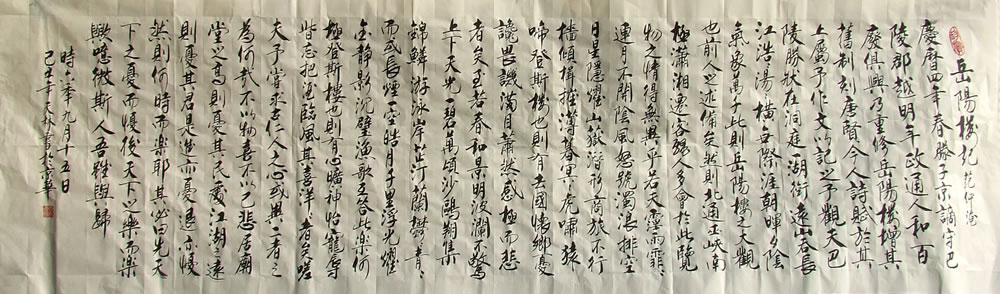 岳陽樓記 范仲淹
慶曆四年春滕子京謫守巴
陵郡越明年政通人和百
廢俱興乃重修岳陽樓增其
舊制刻唐賢今人詩賦於其
上屬予作文以記之予觀夫巴
陵勝狀在洞庭一湖銜遠山吞長
江浩々湯々橫無際涯朝暉夕陰
氣象萬千此則岳陽樓之大觀
也前人之述備矣然則北通巫峽南
極瀟湘遷客騷人多會於此覽
物之情得無異乎若夫霪雨霏々
連月不開陰風怒號濁浪排空
日星隱耀山嶽潛形商旅不行
檣傾楫摧薄暮冥々虎嘯猿
啼登斯樓也則有去國懷鄉憂
讒畏譏滿目蕭然感極而悲
者矣至若春和景明波瀾不驚
上下天光一碧萬頃沙鷗翔集
錦鱗游泳岸芷汀蘭欝々青々
而或長煙一空皓月千里浮光耀
金静影沉璧漁歌互答此樂何
極登斯樓也則有心曠神怡寵辱
皆忘把酒臨風其喜洋々者矣嗟
夫予嘗求古仁人之心或異二者之
為何哉不以物喜不以己悲居廟
堂之高則憂其民處江湖之遠
則憂其君是進亦憂退亦憂
然則何時而樂耶其必曰先天
下之憂而憂後天下之樂而樂
歟噫微斯人吾誰與歸
時六年九月十五日
己丑年天林書於京華